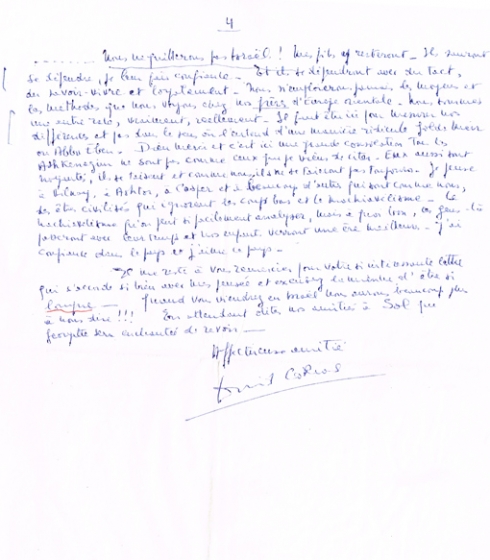 4
........ Nous ne quitterons pas Israël ! Mes fils y resteront - Ils sauront
se défendre, je leur fais confiance - Et ils se défendront avec du tact,
du savoir-vivre et loyalement - Nous n'emploierons jamais les moyens et
les méthodes que nous voyons chez nos frères d'Europe orientale - Nous sommes
une autre race, vraiment, réellement - Il faut être ici pour mesurer nos
différents et pas dans le sens où l'entend d'une manière ridicule Golda Meir
ou Abba Eban - Dieu merci et c'est ici une grande consolation Tous les
Ashkenazim ne sont pas comme ceux que je viens de citer - Eux aussi sont
ils se taisent et comme nous ils ne se tairont pas toujours - Je pense
à à à et à beaucoup d'autres qui sont comme nous,
des êtres civilisés qui ignorent les coups bas et le machiavélisme - Ce
machiavélisme qu'on peut si facilement analyser, mais à quoi bon, ces gens-là
passeront avec leur temps et nos enfants verront une ère meilleure - J'ai
confiance dans le pays et j'aime ce pays -
Je me reste à vous remercier pour votre si intéressante lettre
qui s'accorde si bien avec mes pensées et excusez la mienne d'être si
longue - Quand vous viendrez en Israël nous aurons beaucoup plus
à nous dire !!! En attendant dites nos amitiés à Sol que
sera enchantée de revoir -
Affectueuse amitié